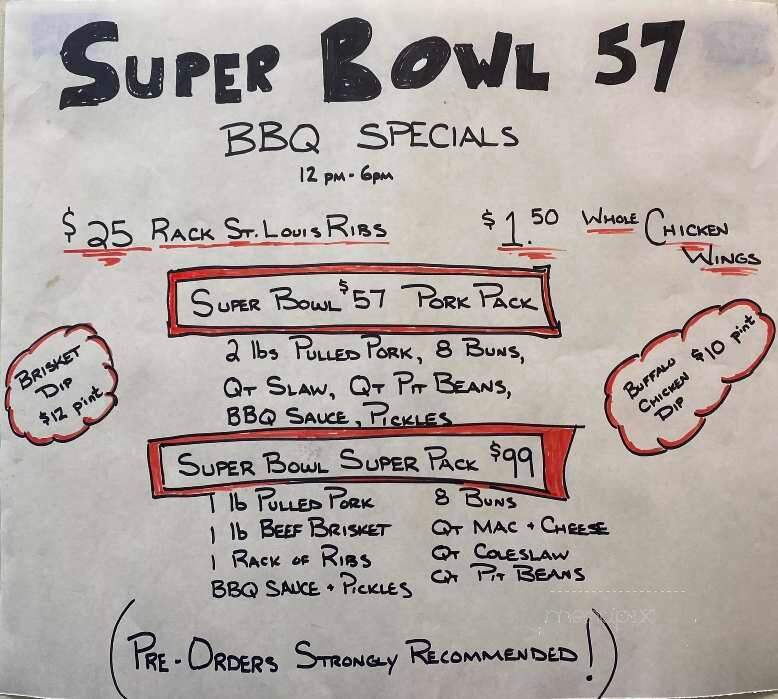 SUPER BOWL 57
BBQ SPECIALS
12 PM - 6PM
$25 RACK ST. LOUIS RIBS
$1.50 WHOLE CHICKEN
WINGS
SUPER BOWL $57 PORK PACK
2 lbs PULLED PORK, 8 BUNS,
QT SLAW, QT PIT BEANS,
BBQ SAUCE, PICKLES
BRISKET
DIP
$12 pint
BUFFALO
CHICKEN $10 pint
DIP
SUPER BOWL SUPER PACK $99
1 lb PULLED PORK
1 lb BEEF BRISKET
1 RACK OF RIBS
BBQ SAUCE + PICKLES
8 BUNS
QT MAC + CHEESE
QT COLESLAW
QT PIT BEANS
menupix
(PRE-ORDERS STRONGLY RECOMMENDED!)